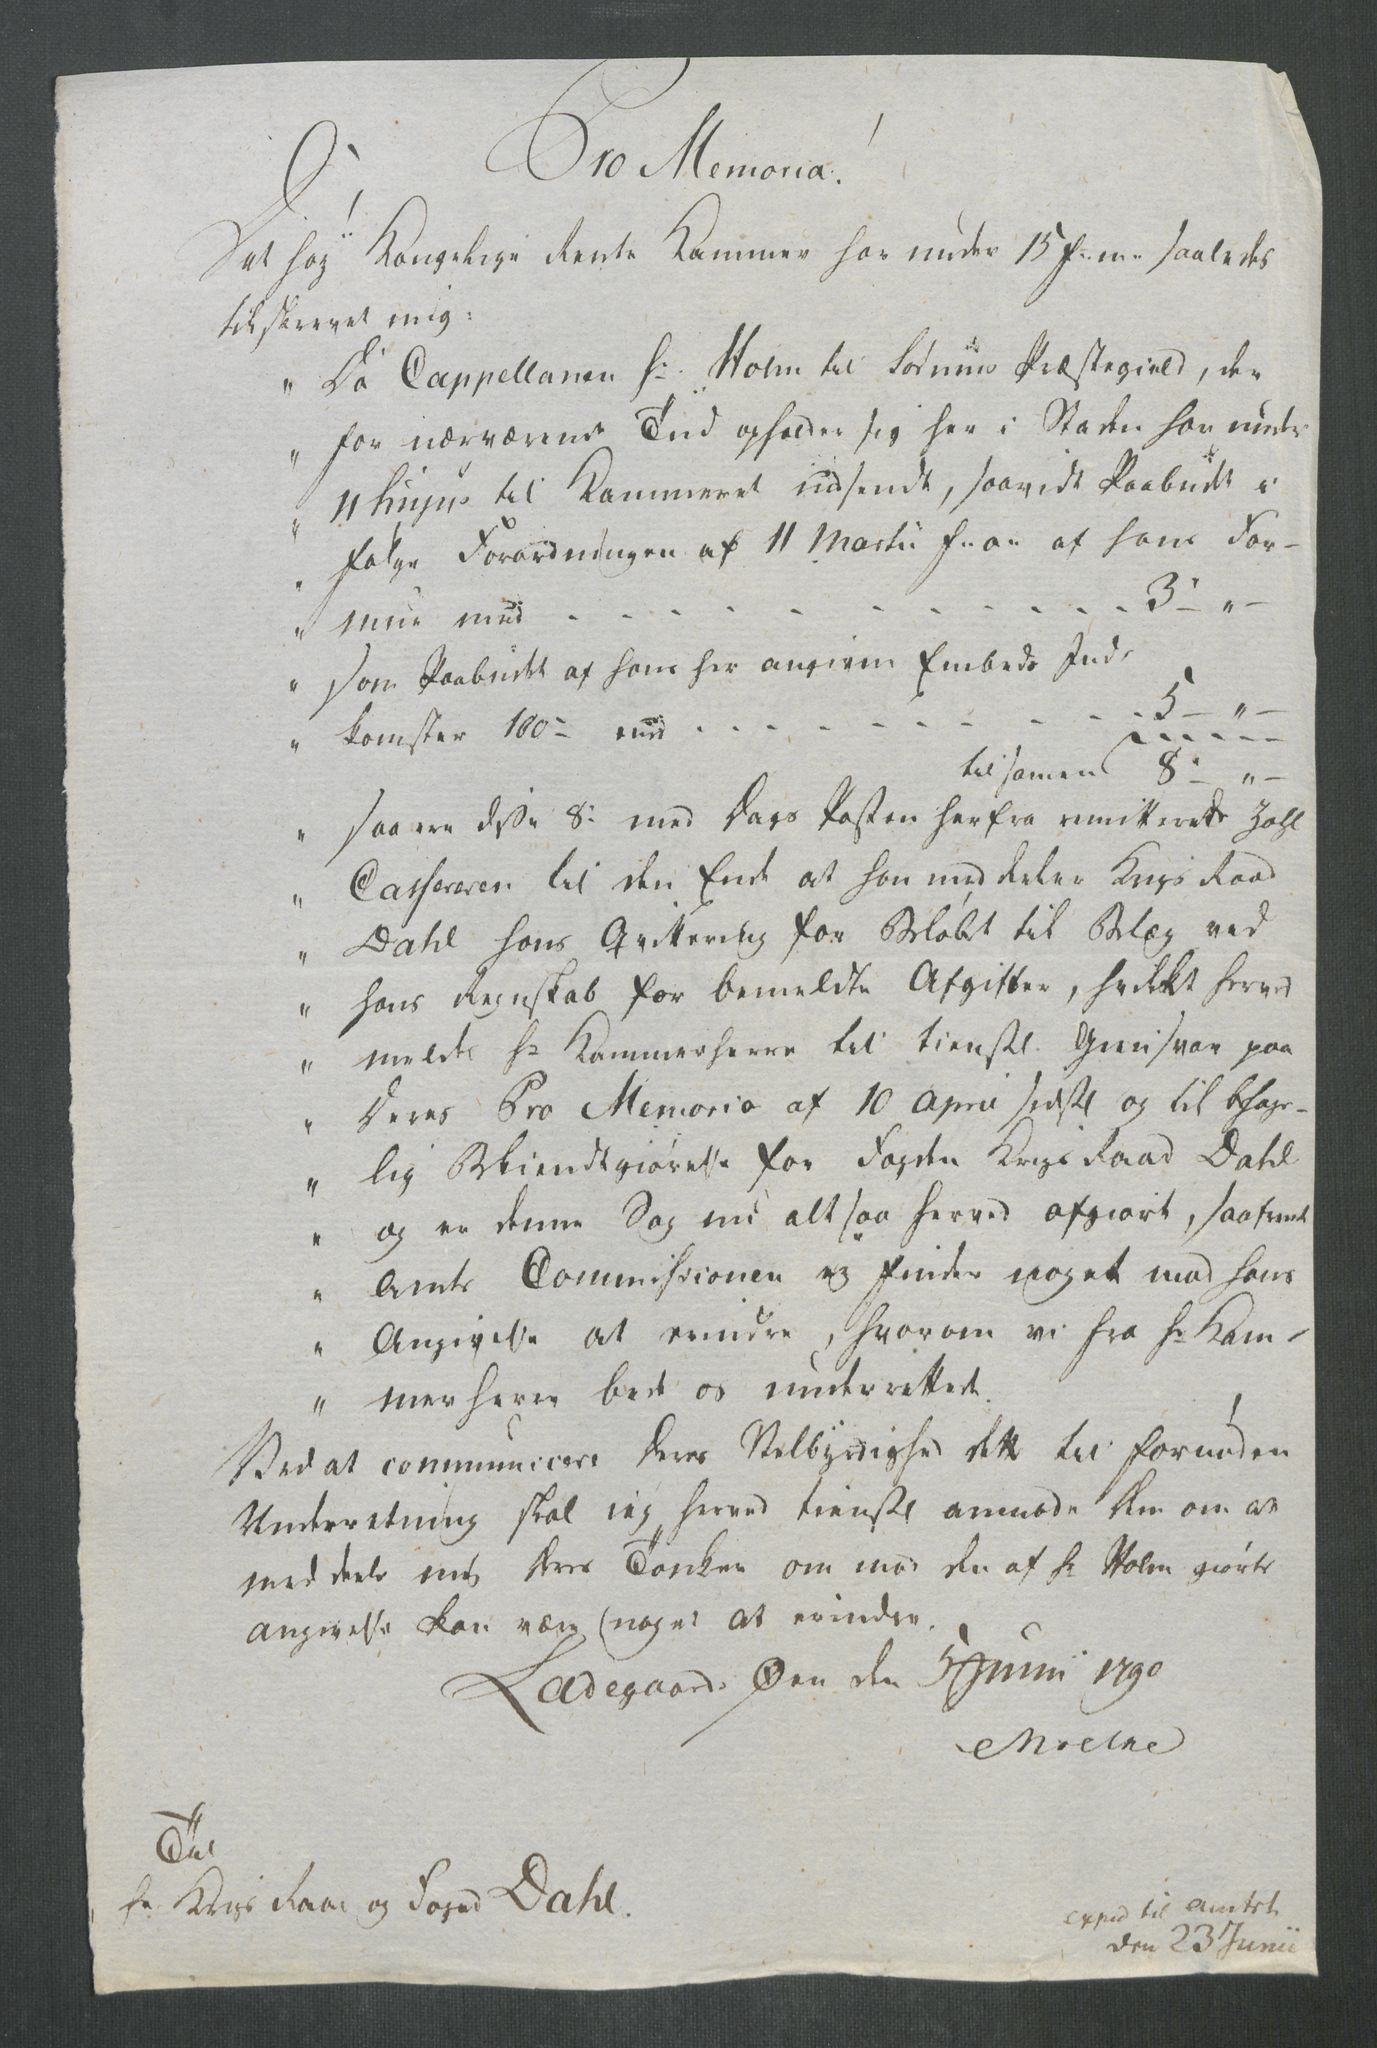 Pro Memoria!
Det høy Kongelige Rente Kammer har under 15 f. m. saaledes
tilskrevet mig:
" Da Cappellanen Hr. Holm til Sørums Præstegield, der
" for nærværende Tiid opholder sig her i Staden har under
" 11 hujus til Kammeret indsendt, saavidt Paabudt i
" følge Forordningen af 11 Martii f. a. af hans For-
" mue med - - - - - - - - - - - - 3 - " -
" som Paabudet af hans her angivne Embeds Ind-
" komster 100 - med - - - - - - - - - - 5 - " -
tilsamen 8 - " -
" saa ere disse 8 med Dags Posten herfra remitterede Zahl
" Cassereren til den Ende at han meddeler Krigs Raad
" Dahl hans Qvittering for Beløbet til Belæg ved
" hans Regnskab for bemeldte Afgifter, hvilket herved
" meldes Hr Kammerherre til tienstl. Giensvar paa
" Deres Pro Memoria af 10 April sidstl og til behage-
" lig Bekiendtgiørelse for Fogden Krigs Raad Dahl
" og er denne Sag nu altsaa herved afgiort, saafremt
" Amts Commissionen ej finder noget mod hans
" Angivelse at erindre, hvorom vi fra Hr Kam-
" merherre bede os underrettede.
Ved at communicere Deres Velbyrdighed dette til fornøden
Underretning skal jeg herved tienstl anmode Dem om at
meddeele mig Deres Tanker om mod den af Hr Holm giorte
angivelse kan være noget at erindre.
Ladegaards Øen den 5 Junii 1790
Moltke
Til
Hr Krigs Raad og Foged Dahl.
exped til Amtet
den 23 Junii